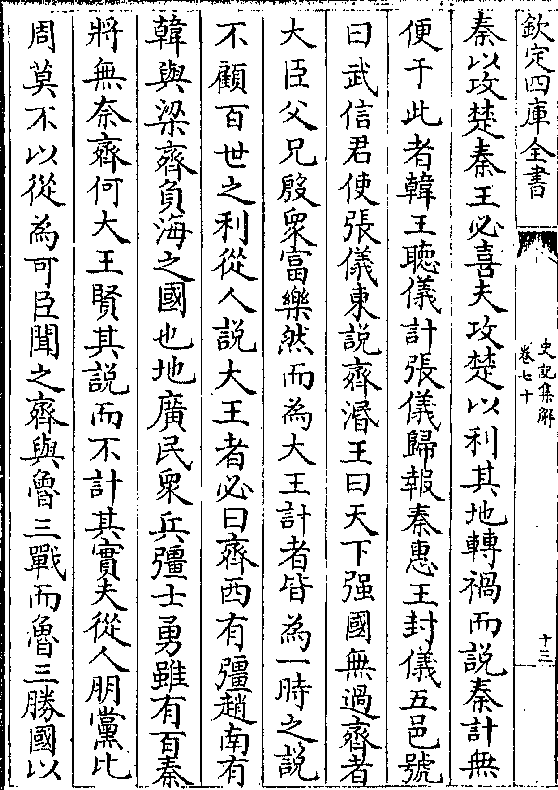 欽定四庫全書
史記集解
卷七十
十三
秦以攻楚秦王必喜夫攻楚以利其地轉禍而説秦計無
便于此者韓王聽儀計張儀歸報秦惠王封儀五邑號
曰武信君使張儀東説齊湣王曰天下强國無過齊者
大臣父兄殷衆富樂然而為大王計者皆為一時之説
不顧百世之利從人説大王者必曰齊西有彊趙南有
韓與梁齊負海之國也地廣民衆兵彊士勇雖有百秦
將無奈齊何大王賢其説而不計其實夫從人朋黨比
周莫不以從為可臣聞之齊與魯三戰而魯三勝國以